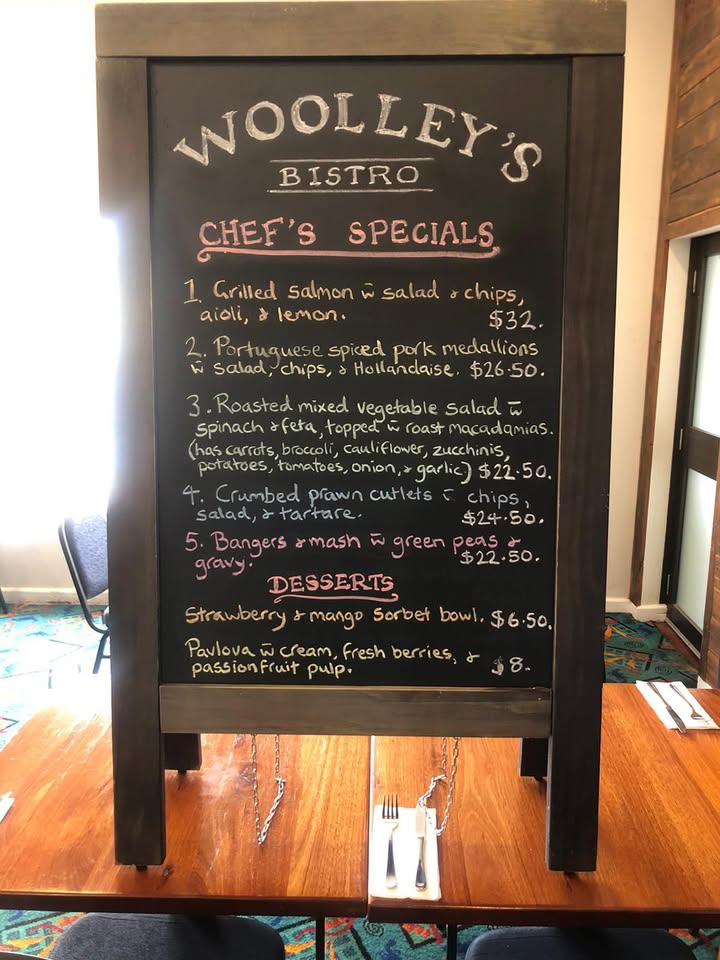 WOOLLEY'S
BISTRO
CHEF'S SPECIALS
1. Grilled salmon w̄ salad & chips,
aioli, & lemon.
$32.
2. Portuguese spiced pork medallions
w̄ salad, chips, & Hollandaise. $26.50.
3. Roasted mixed vegetable salad w̄
spinach & feta, topped w̄ roast macadamias.
(has carrots, broccoli, cauliflower, zucchinis,
potatoes, tomatoes, onion, & garlic) $22.50.
4. Crumbed prawn cutlets w̄ chips,
salad, & tartare.
$24.50.
5. Bangers & mash w̄ green peas &
gravy.
$22.50.
DESSERTS
Strawberry & mango sorbet bowl. $6.50.
Pavlova w̄ cream, fresh berries, &
passionfruit pulp.
$8.